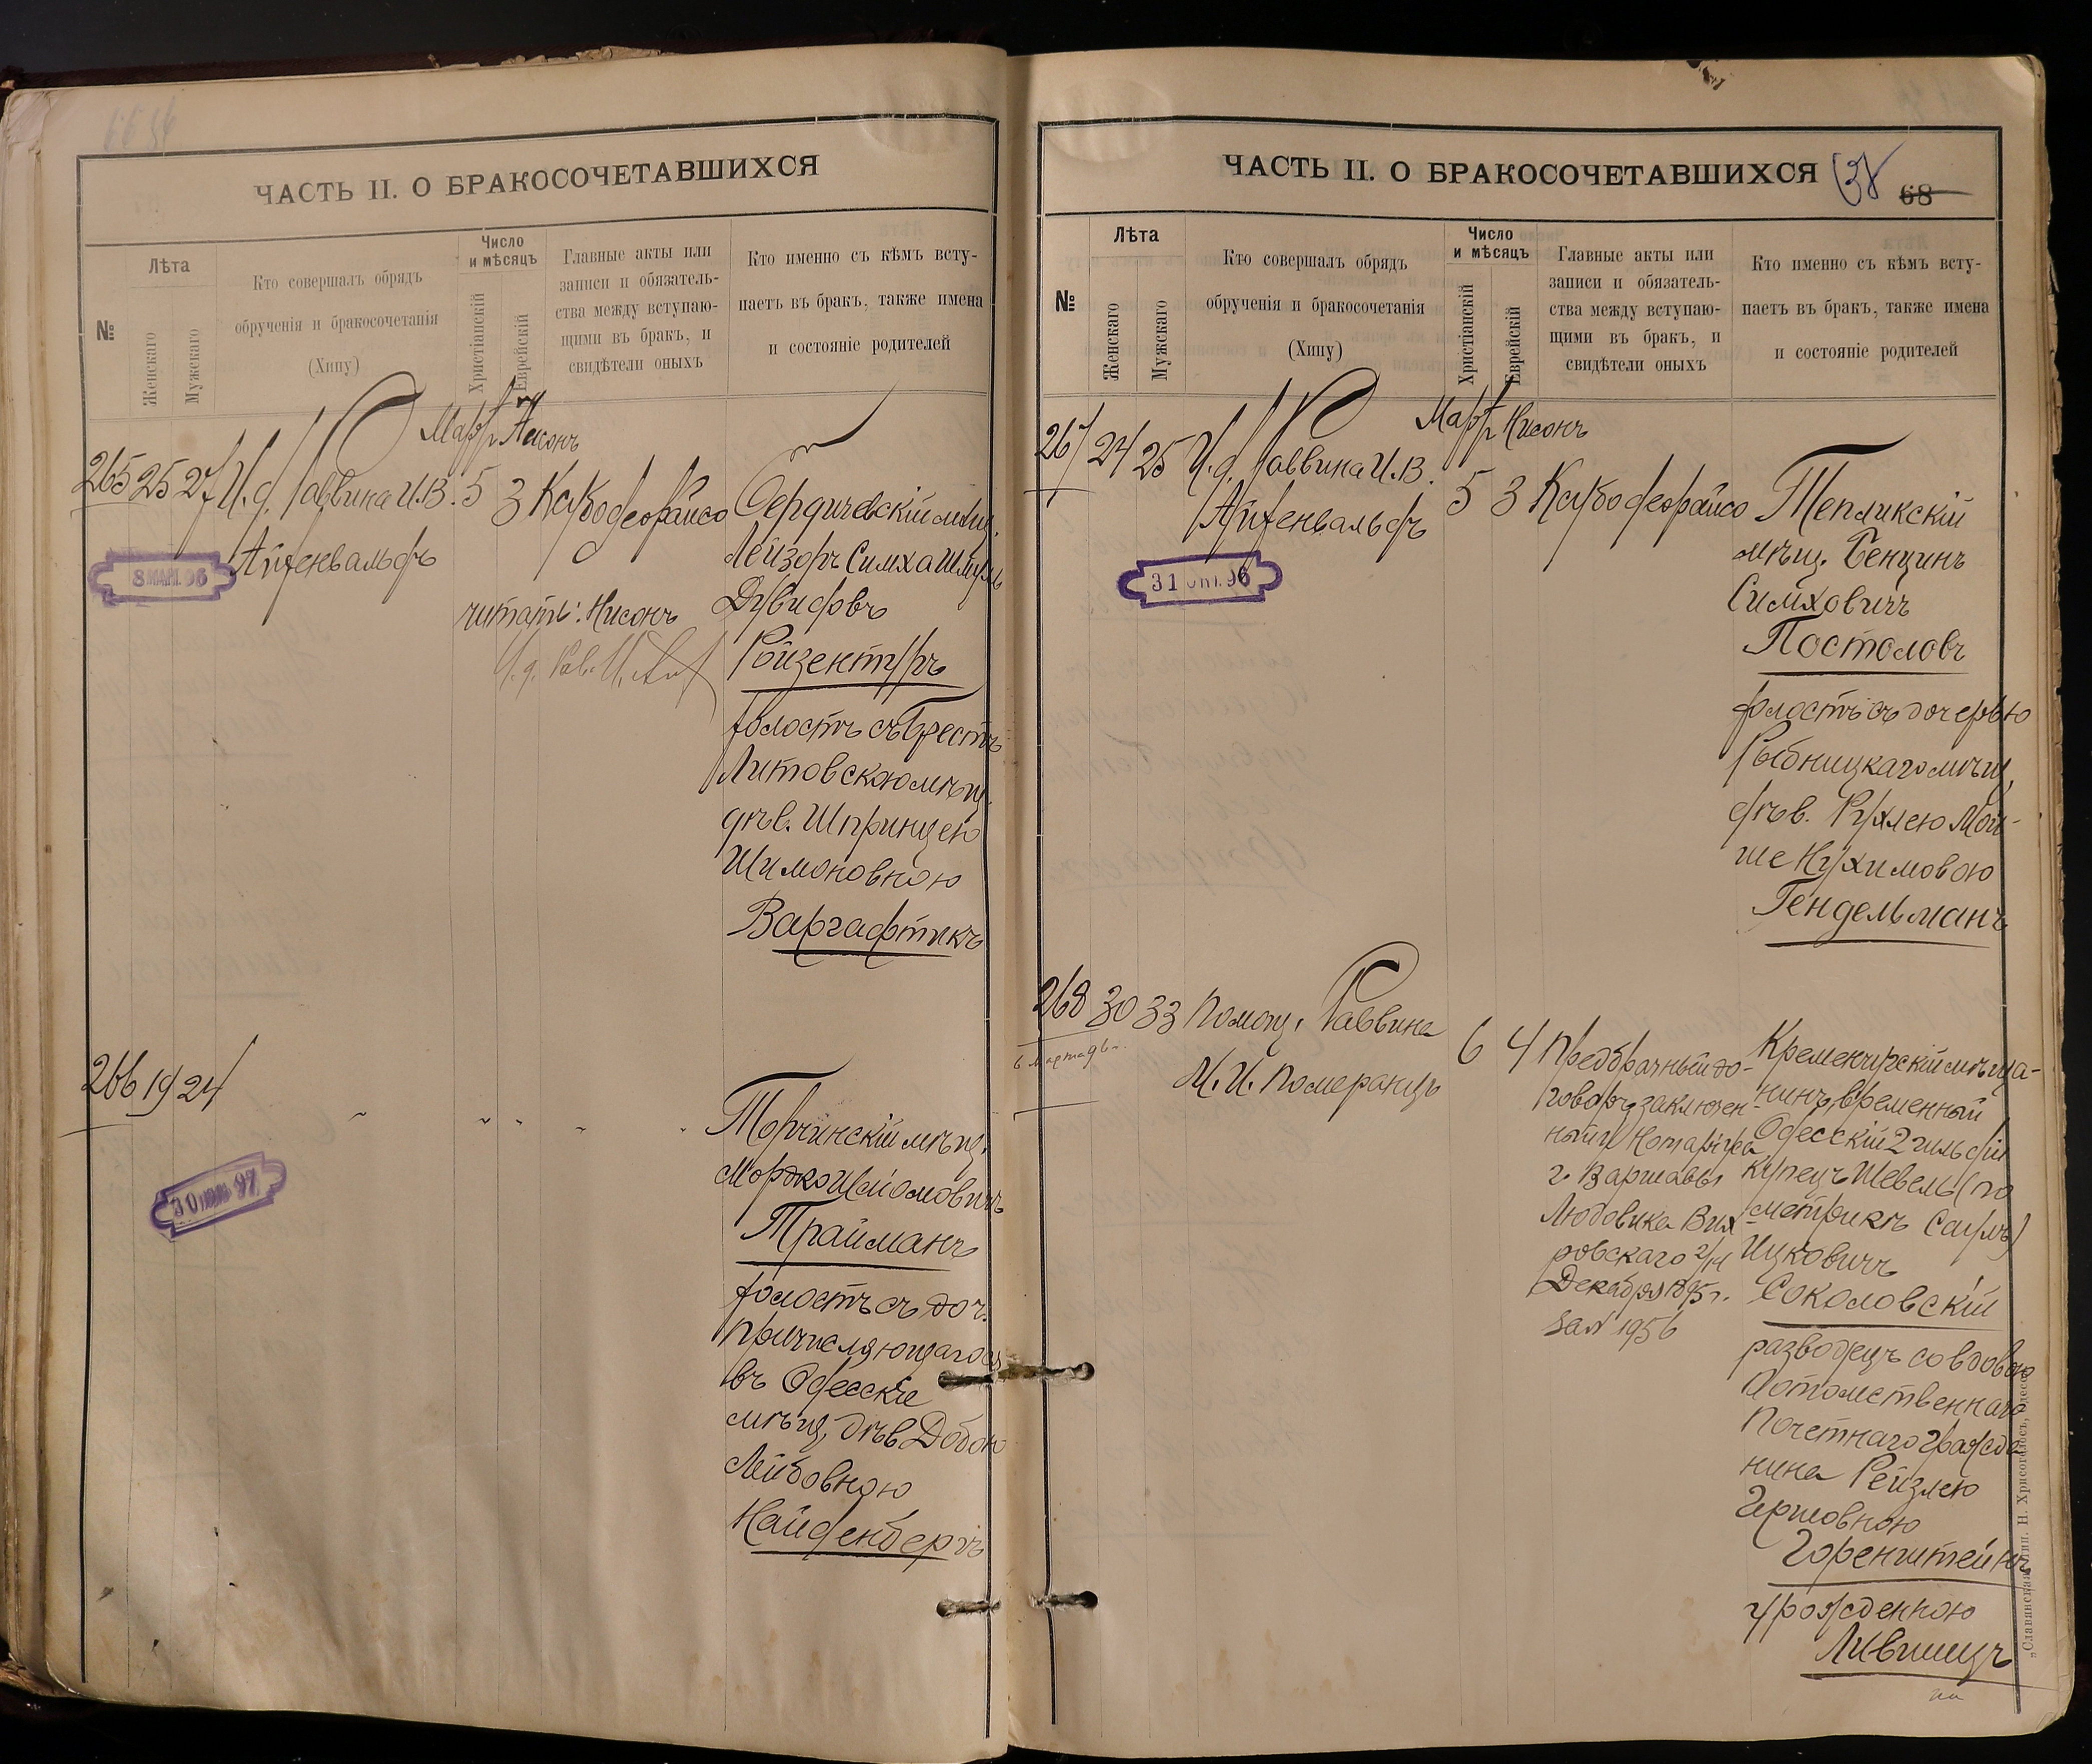 ЧАСТЬ II. О БРАКОСОЧЕТАВШИХСЯ
№
Лѣта
Женскаго
Мужскаго
Кто совершалъ обрядъ
обрученія и бракосочетанія
(Хипу)
Число
и мѣсяцъ
Христіанскій
Еврейскій
Главные акты или
записи и обязатель-
ства между вступаю-
щими въ бракъ, и
свидѣтели оныхъ
Кто именно съ кѣмъ всту-
паетъ въ бракъ, также имена
и состояніе родителей
Мартъ Нисонъ
265 25 27 И. д. Раввина И.В. 5 3
Айзенвальдъ
8 МАРТ. 96
читать: Нисонъ
Бердичевскій мѣщ.
Лейзоръ Симха Шмуль
Дувидовъ
Ройзентуръ
холостъ съ Брестъ
Литовскою мѣщ.
дѣв. Шпринцею
Шимоновною
Варгафтикъ
266 19 24
30 97
Торчинскій мѣщ.
Мордко Шліомовичъ
Трайманъ
холостъ съ доч.
причисляющагося
въ Одесскіе
мѣщ. дѣв Добою
Лейбовною
Найденбергъ
ЧАСТЬ II. О БРАКОСОЧЕТАВШИХСЯ
68
№
Лѣта
Женскаго
Мужскаго
Кто совершалъ обрядъ
обрученія и бракосочетанія
(Хипу)
Число
и мѣсяцъ
Христіанскій
Еврейскій
Главные акты или
записи и обязатель-
ства между вступаю-
щими въ бракъ, и
свидѣтели оныхъ
Кто именно съ кѣмъ всту-
паетъ въ бракъ, также имена
и состояніе родителей
Мартъ Нисонъ
267 24 25 И. д. Раввина И.В. 5 3
Айзенвальдъ
31 ОКТ. 96
Тепликскій
мѣщ. Бенцинъ
Симховичъ
Постоловъ
холостъ съ дочерью
Рыбницкаго мѣщ.
дѣв. Рухлею Мой-
ше Нухимовою
Гендельманъ
268 30 33 Помощ. Раввина 6 4
6 марта 96 г.
М. И. Померанцъ
Предбрачный до-
говоръ, заключен-
ный у Нотаріуса
г. Варшавы
Людовика
ровскаго 2/14
Декабря 1895 г.
за № 1956
Кременчугскій мѣща-
нинъ, временный
Одесскій 2 гильдіи
купецъ Шевель (по
метрикѣ Саулъ)
Ицковичъ
Соколовскій
разводецъ со вдовою
Потомственнаго
Почетнаго гражда
нина Рейзлею
Гершовною
Горенштейнъ
урожденною
Лившицъ
„Славянская" тип. Н. Хрисогелосъ, Одесса